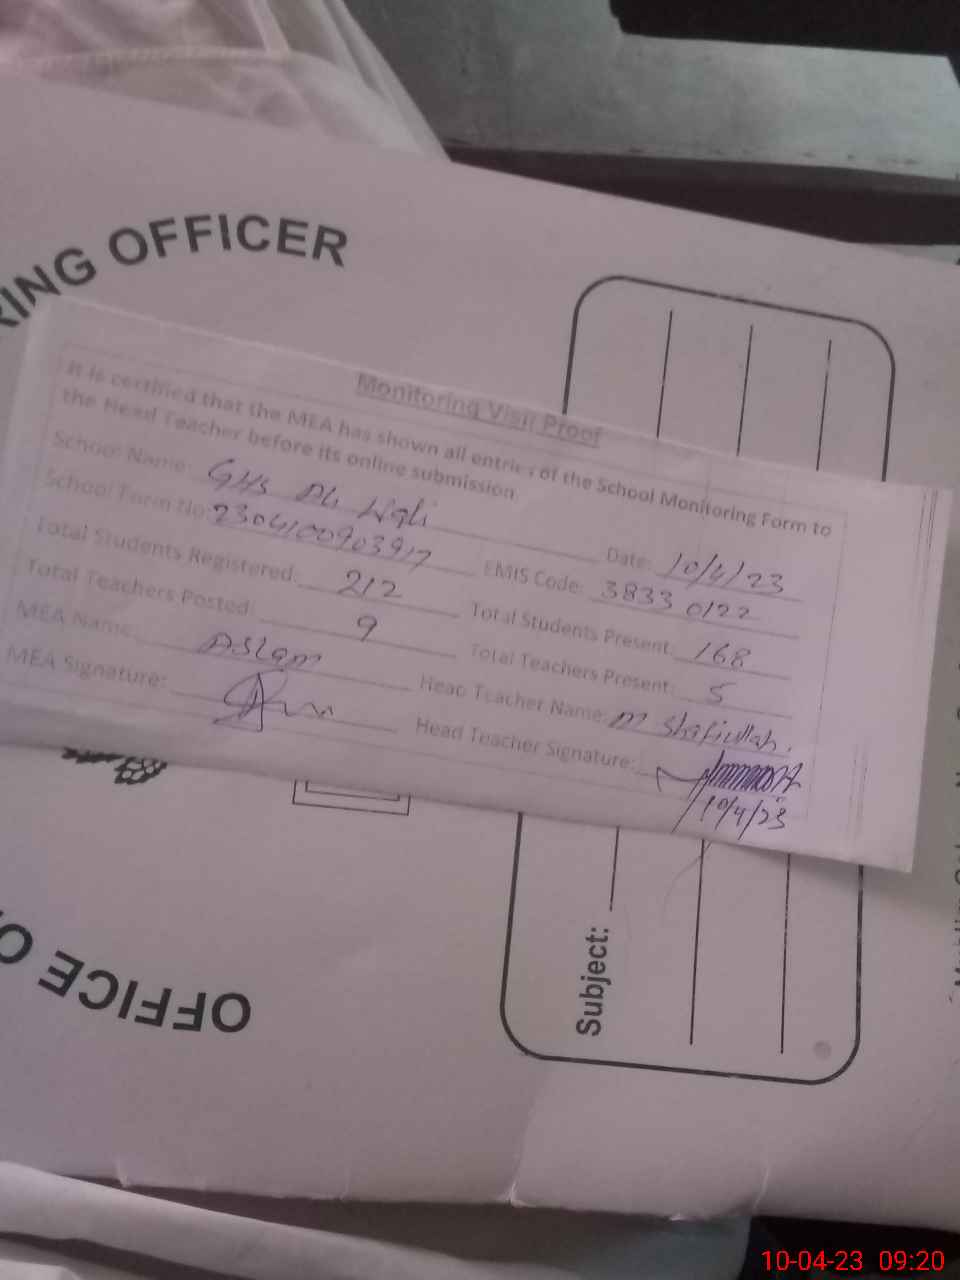 RING OFFICER
Monitoring Visit Proof
It is certified that the MEA has shown all entries of the School Monitoring Form to
the Head Teacher before its online submission
School Name: GHS Wali Date: 10/4/23
School Form No: EMIS Code: 38330122
Total Students Registered: 212 Total Students Present: 168
Total Teachers Posted: 9 Total Teachers Present: 5
MEA Name: Aslam Head Teacher Name: M Shafiullah.
MEA Signature: Head Teacher Signature:
10/4/23
Subject:
OFFICE O
10-04-23 09:20